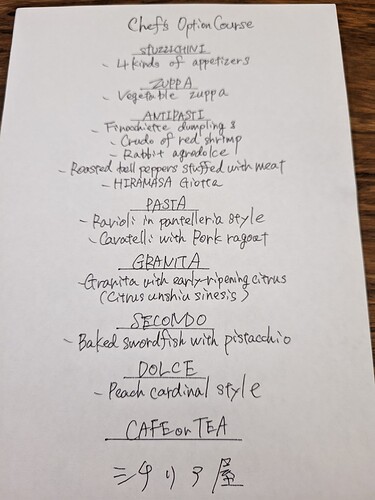 Chef's Option Course
STUZZICHINI
- 4 kinds of appetizers
ZUPPA
- Vegetable zuppa
ANTIPASTI
- Finocchiette dumplings
- Crudo of red shrimp
- Rabbit agrodolce
- Roasted bell peppers stuffed with meat
- HIRAMASA Giotta
PASTA
- Ravioli in pantelleria style
- Cavatelli with Pork ragout
GRANITA
- Granita with early-ripening citrus
(Citrus unshiu sinesis)
SECONDO
- Baked swordfish with pistacchio
DOLCE
- Peach cardinal style
CAFE or TEA
シチリア屋